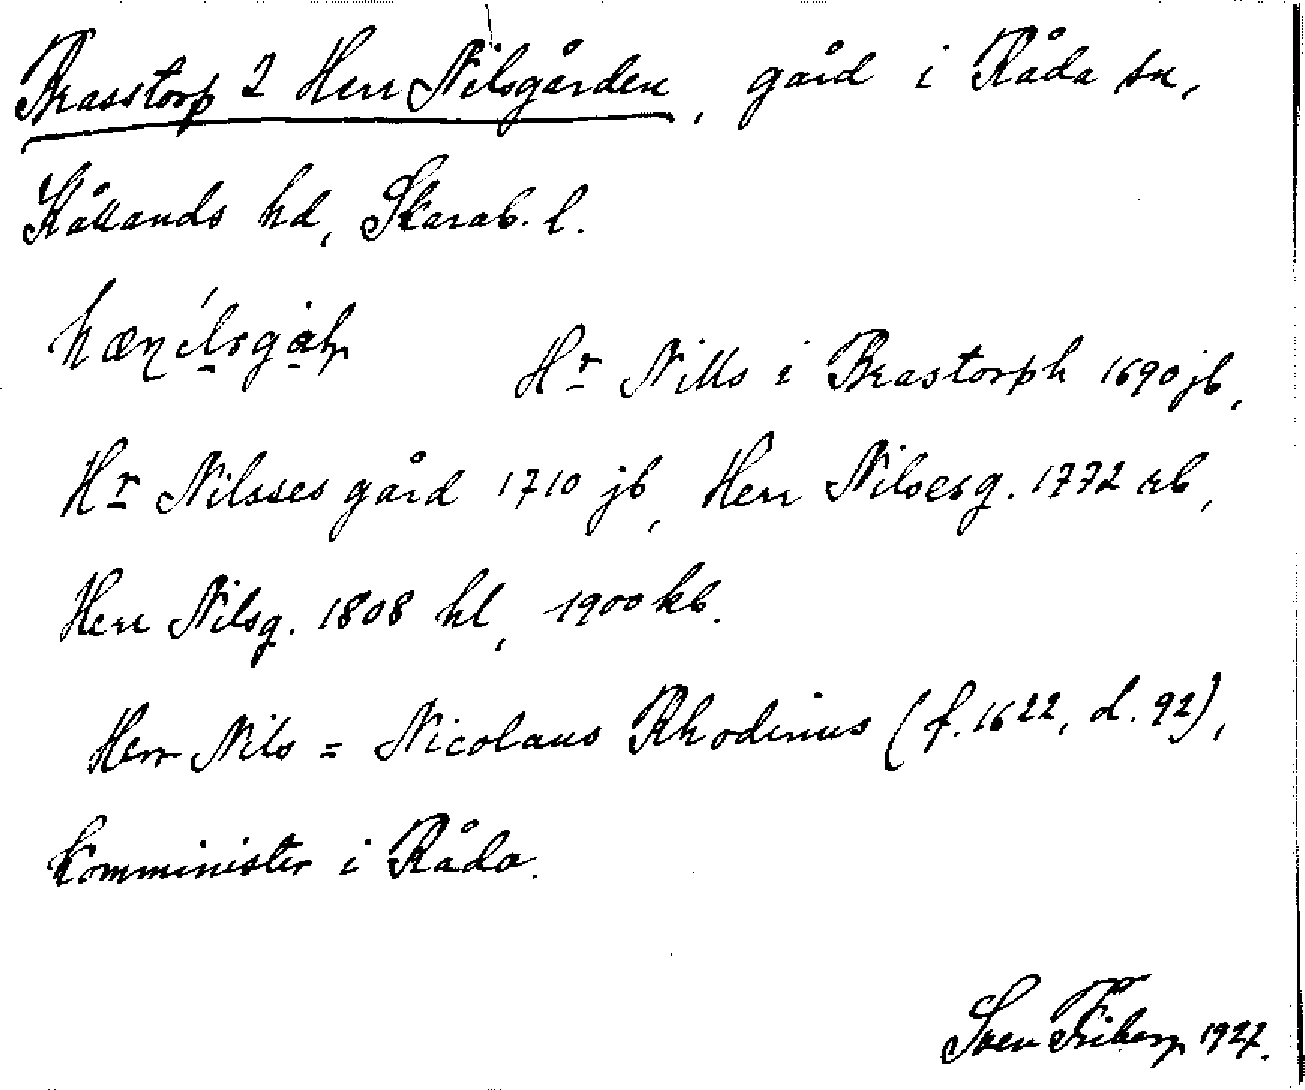 Brasstorp 2 Herr Nilsgården, gård i Råda sn,
Kållands hd, Skarab. l.
Hr Nills i Brastorph 1690 jb,
Hr Nilsses gård 1710 jb, Herr Nilsesg. 1772 rb,
Herr Nilsg. 1808 hl, 1900 kb.
Herr Nils = Nicolaus Rhodinus (f. 1622, d. 92),
komminister i Råda.
Sven Friberg 1927.